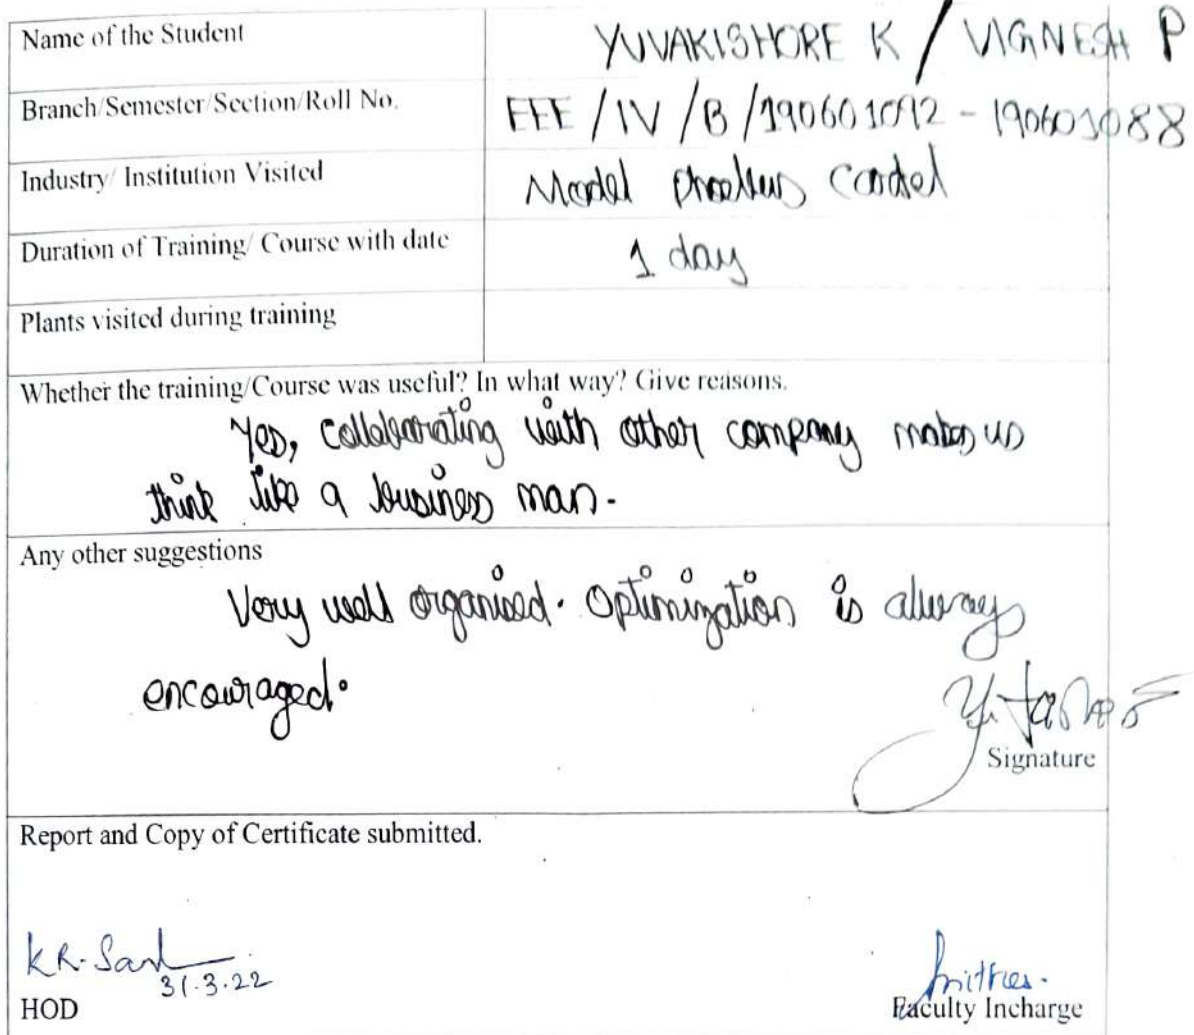 Name of the Student YUVAKISHORE K / VIGNESH P
Branch/Semester/Section/Roll No. EEE / IV / B / 190601092 - 190601088
Industry/ Institution Visited Model
Duration of Training/ Course with date 1 day
Plants visited during training
Whether the training/Course was useful? In what way? Give reasons.
Yes, collaborating with other company makes us
think like a business man.
Any other suggestions
Very well organised. Optimization is always
encouraged.
Signature
Report and Copy of Certificate submitted.
31.3.22
HOD Faculty Incharge